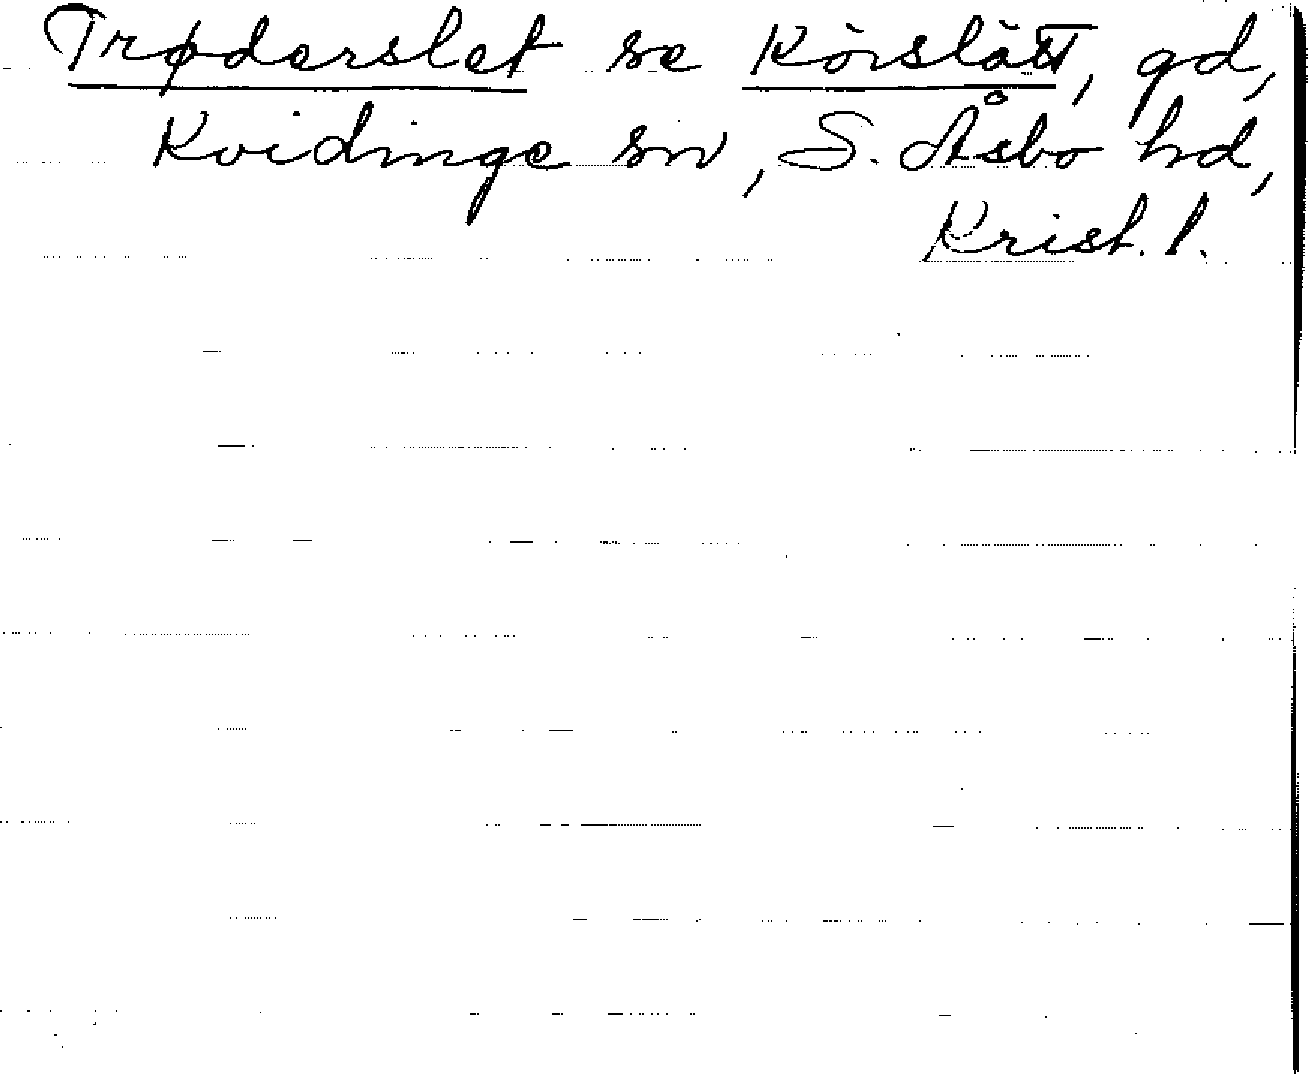 Trøderslet se Körslätt, gd,
Kvidinge sn, S. Åsbo hd,
Krist. l.